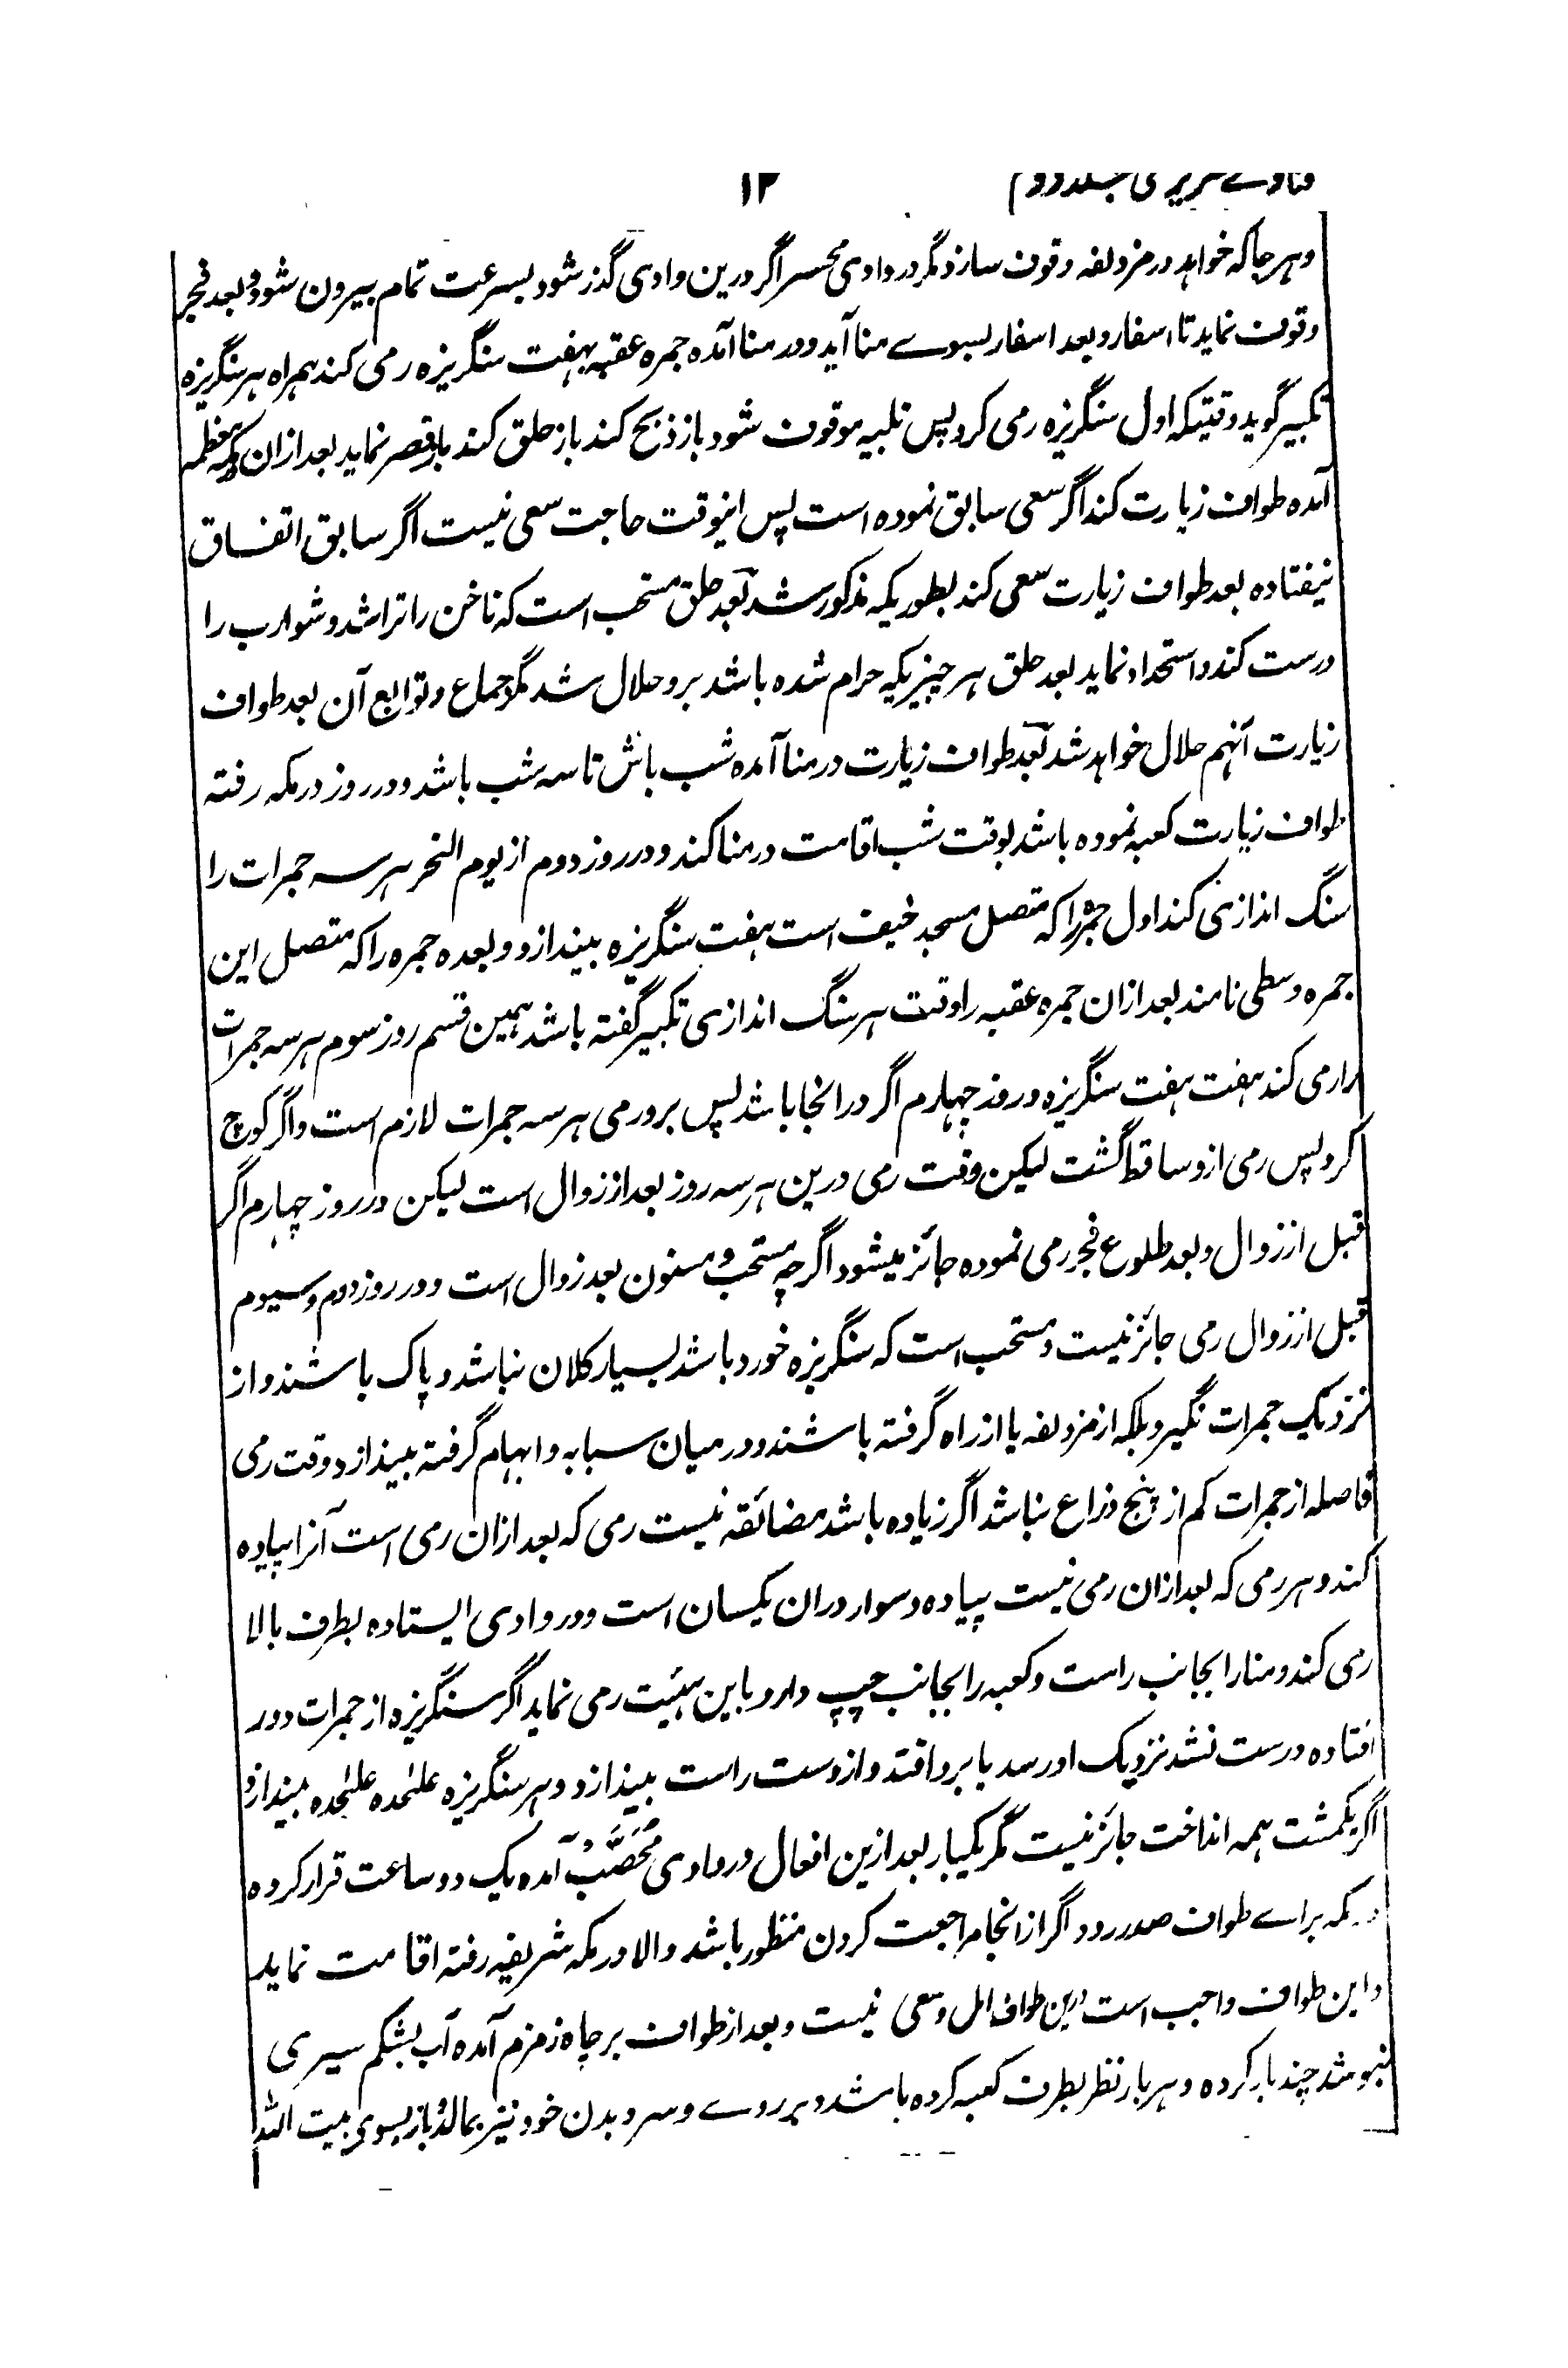 فتاوے عزیزی جلد دوم ۱۲
وہرجا کہ خواہد در مزدلفہ وقوف سازد مگر در وادی محسر اگر درین وادی گذر شود بسرعت تمام بیرون شود و بعد فجر
وقوف نماید تا اسفار و بعد اسفار بسوے منا آید و در منا آمدہ جمرہ عقبہ بہفت سنگریزہ رمی کند ہمراہ ہر سنگریزہ
تکبیر گوید وقتیکہ اول سنگریزہ رمی کرد پس تلبیہ موقوف شود باز ذبح کند باز حلق کند یا قصر نماید بعد ازان بمکہ معظمہ
آمدہ طواف زیارت کند اگر سعی سابق نمودہ است پس اینوقت حاجت سعی نیست اگر سابق اتفاق
نیفتادہ بعد طواف زیارت سعی کند بطوریکہ مذکور شد بعد حلق مستحب است کہ ناخن را تراشد و شوارب را
درست کند و استحداد نماید بعد حلق ہر چیزیکہ حرام شدہ باشد برو حلال شد مگر جماع و توابع آن بعد طواف
زیارت آنہم حلال خواہد شد بعد طواف زیارت در منا آمدہ شب باش تا سہ شب باشد و در روز در مکہ رفتہ
طواف زیارت کعبہ نمودہ باشد بوقت شب اقامت در منا کند و در روز دوم از یوم النحر ہر سہ جمرات را
سنگ اندازی کند اول جمرہ را کہ متصل مسجد خیف است ہفت سنگریزہ بیندازد و بعدہ جمرہ را کہ متصل این
جمرہ وسطی نامند بعد ازان جمرہ عقبہ را وقت ہر سنگ اندازی تکبیر گفتہ باشد ہمین قسم روز سوم ہر سہ جمرات
را رمی کند ہفت ہفت سنگریزہ و روز چہارم اگر در انجا باشد پس برو رمی ہر سہ جمرات لازم است و اگر کوچ
کرد پس رمی ازو ساقط گشت لیکن وقت رمی درین ہر سہ روز بعد از زوال است لیکن در روز چہارم اگر
قبل از زوال و بعد طلوع فجر رمی نمودہ جائز میشود اگرچہ مستحب و مسنون بعد زوال است و در روز دوم و سیوم
قبل از زوال رمی جائز نیست و مستحب است کہ سنگریزہ خورد باشد بسیار کلان نباشد و پاک باشند و از
نزدیک جمرات نگیرد بلکہ از مزدلفہ یا از راہ گرفتہ باشند و در میان سبابہ و ابہام گرفتہ بیندازد وقت رمی
فاصلہ از جمرات کم از پنج ذراع نباشد اگر زیادہ باشد مضائقہ نیست رمی کہ بعد ازان رمی است آنرا پیادہ
کند و ہر رمی کہ بعد ازان رمی نیست پیادہ و سوار دران یکسان است و در وادی ایستادہ بطرف بالا
رمی کند و منا را بجانب راست و کعبہ را بجانب چپ دارد باین ہیئت رمی نماید اگر سنگریزہ از جمرات دور
افتادہ درست نشد نزدیک او رسد یا برو افتد و از دست راست بیندازد و ہر سنگریزہ علٰحدہ علٰحدہ بیندازد
اگر یکمشت ہمہ انداخت جائز نیست مگر یکبار بعد ازین افعال در وادی مُحَصَّبْ آمدہ یک دو ساعت قرار کردہ
در مکہ براے طواف صدر رود اگر از انجا مراجعت کردن منظور باشد والا در مکہ شریفہ رفتہ اقامت نماید
و این طواف واجب است درین طواف رمل و سعی نیست و بعد از طواف بر چاہ زمزم آمدہ آب بشکم سیری
بنوشد چند بار کردہ و ہر بار نظر بطرف کعبہ کردہ باشد و بر روے و سر و بدن خود نیز بمالد و باز بسوی بیت اللہ